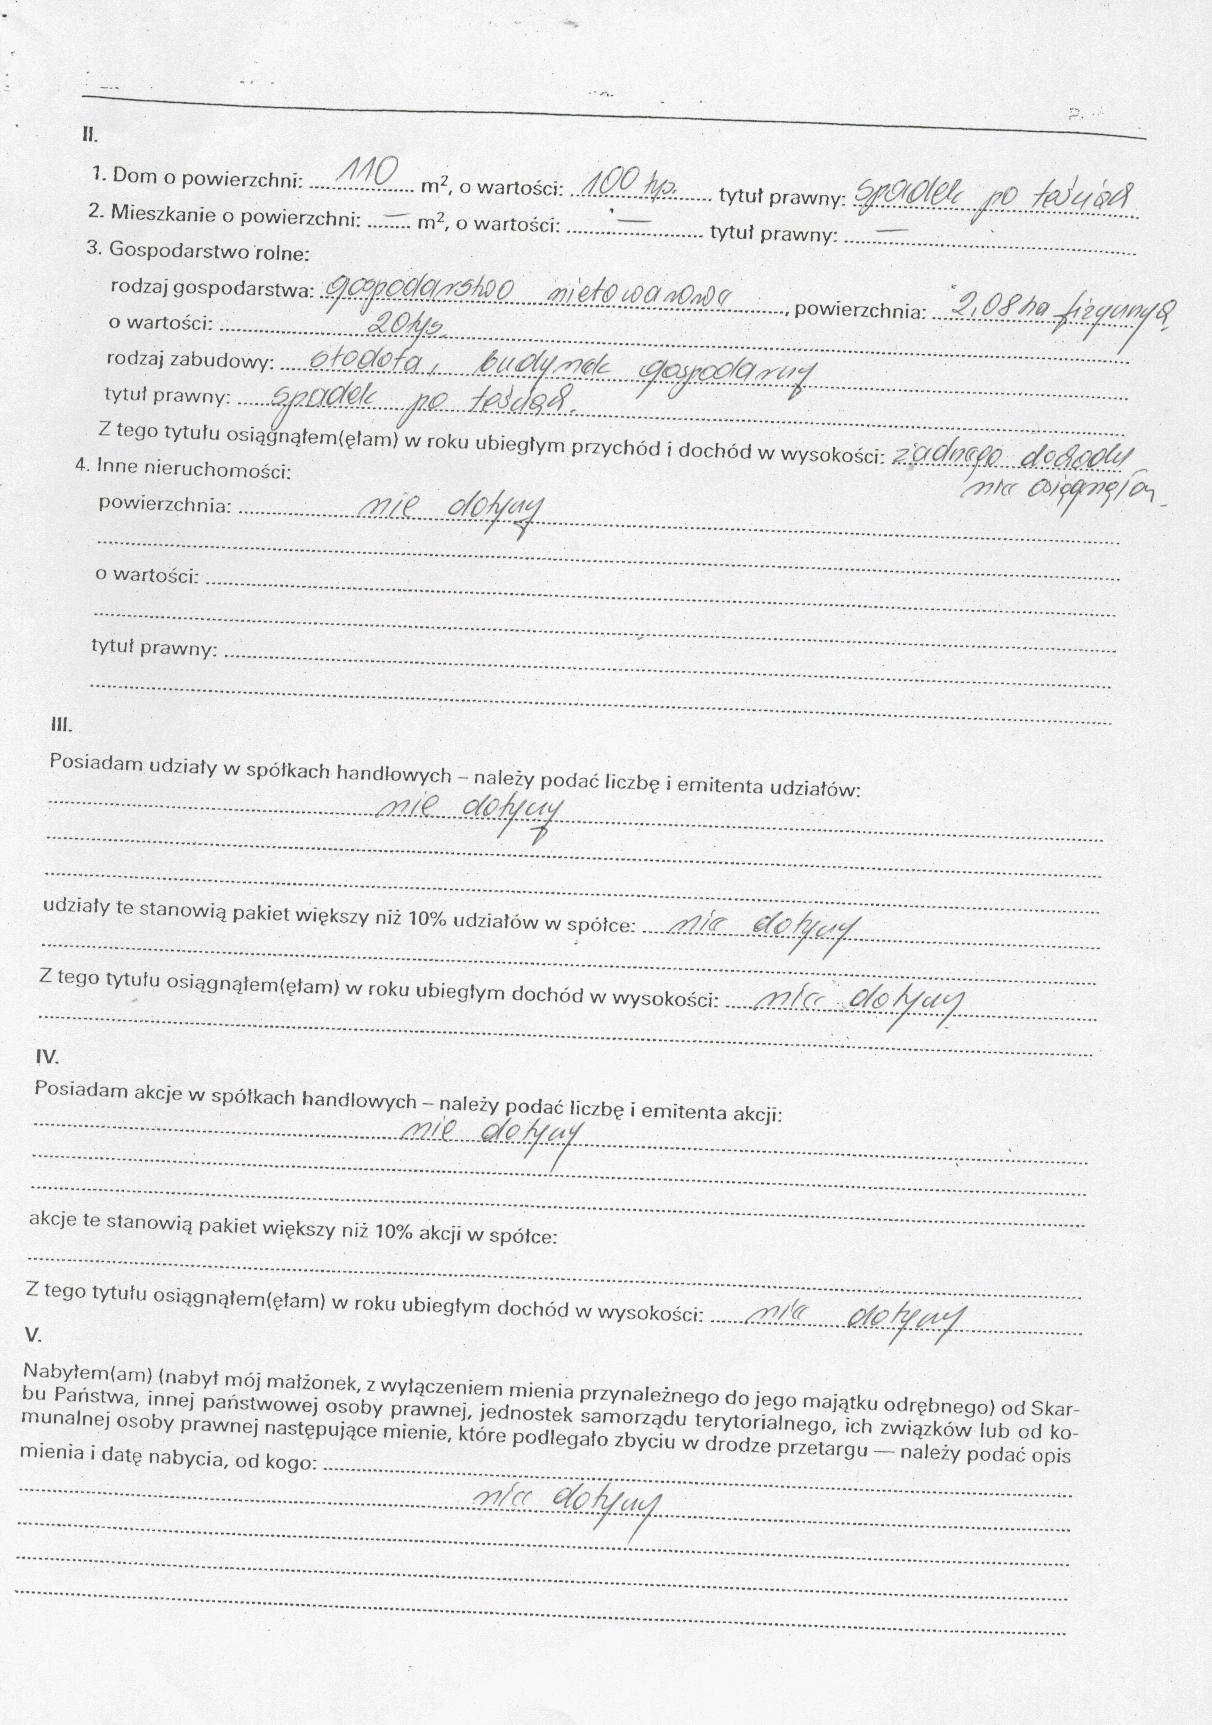 II.
1. Dom o powierzchni: 110 m², o wartości: 100 tys. tytuł prawny: spadek po teściach
2. Mieszkanie o powierzchni: — m², o wartości: — tytuł prawny: —
3. Gospodarstwo rolne:
rodzaj gospodarstwa: gospodarstwo nietowarowe, powierzchnia: 2,08 ha fizycznych
o wartości: 20 tys.
rodzaj zabudowy: stodoła, budynek gospodarczy
tytuł prawny: spadek po teściach.
Z tego tytułu osiągnąłem(ęłam) w roku ubiegłym przychód i dochód w wysokości: żadnego dochodu
nie osiągnęłam
4. Inne nieruchomości:
powierzchnia: nie dotyczy
o wartości:
tytuł prawny:
III.
Posiadam udziały w spółkach handlowych – należy podać liczbę i emitenta udziałów:
nie dotyczy
udziały te stanowią pakiet większy niż 10% udziałów w spółce: nie dotyczy
Z tego tytułu osiągnąłem(ęłam) w roku ubiegłym dochód w wysokości: nie dotyczy
IV.
Posiadam akcje w spółkach handlowych – należy podać liczbę i emitenta akcji:
nie dotyczy
akcje te stanowią pakiet większy niż 10% akcji w spółce:
Z tego tytułu osiągnąłem(ęłam) w roku ubiegłym dochód w wysokości: nie dotyczy
V.
Nabyłem(am) (nabył mój małżonek, z wyłączeniem mienia przynależnego do jego majątku odrębnego) od Skar-
bu Państwa, innej państwowej osoby prawnej, jednostek samorządu terytorialnego, ich związków lub od ko-
munalnej osoby prawnej następujące mienie, które podlegało zbyciu w drodze przetargu — należy podać opis
mienia i datę nabycia, od kogo:
nie dotyczy